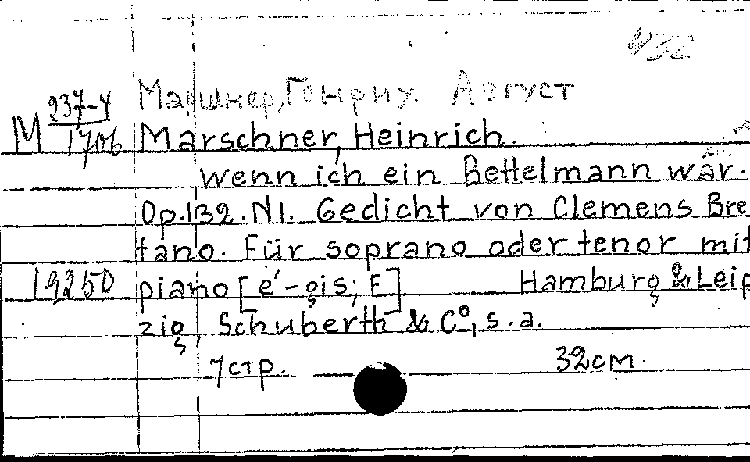 Машнер, Генрих Август
М 937-4/1706
Marschner, Heinrich.
wenn ich ein Bettelmann wär.
Op.132. N1. Gedicht von Clemens Bre
tano. Für soprano oder tenor mit
19250 piano [e'-gis; E] Hamburg & Leip
zig, Schuberth & Co, s.a.
7 стр. 32 см.